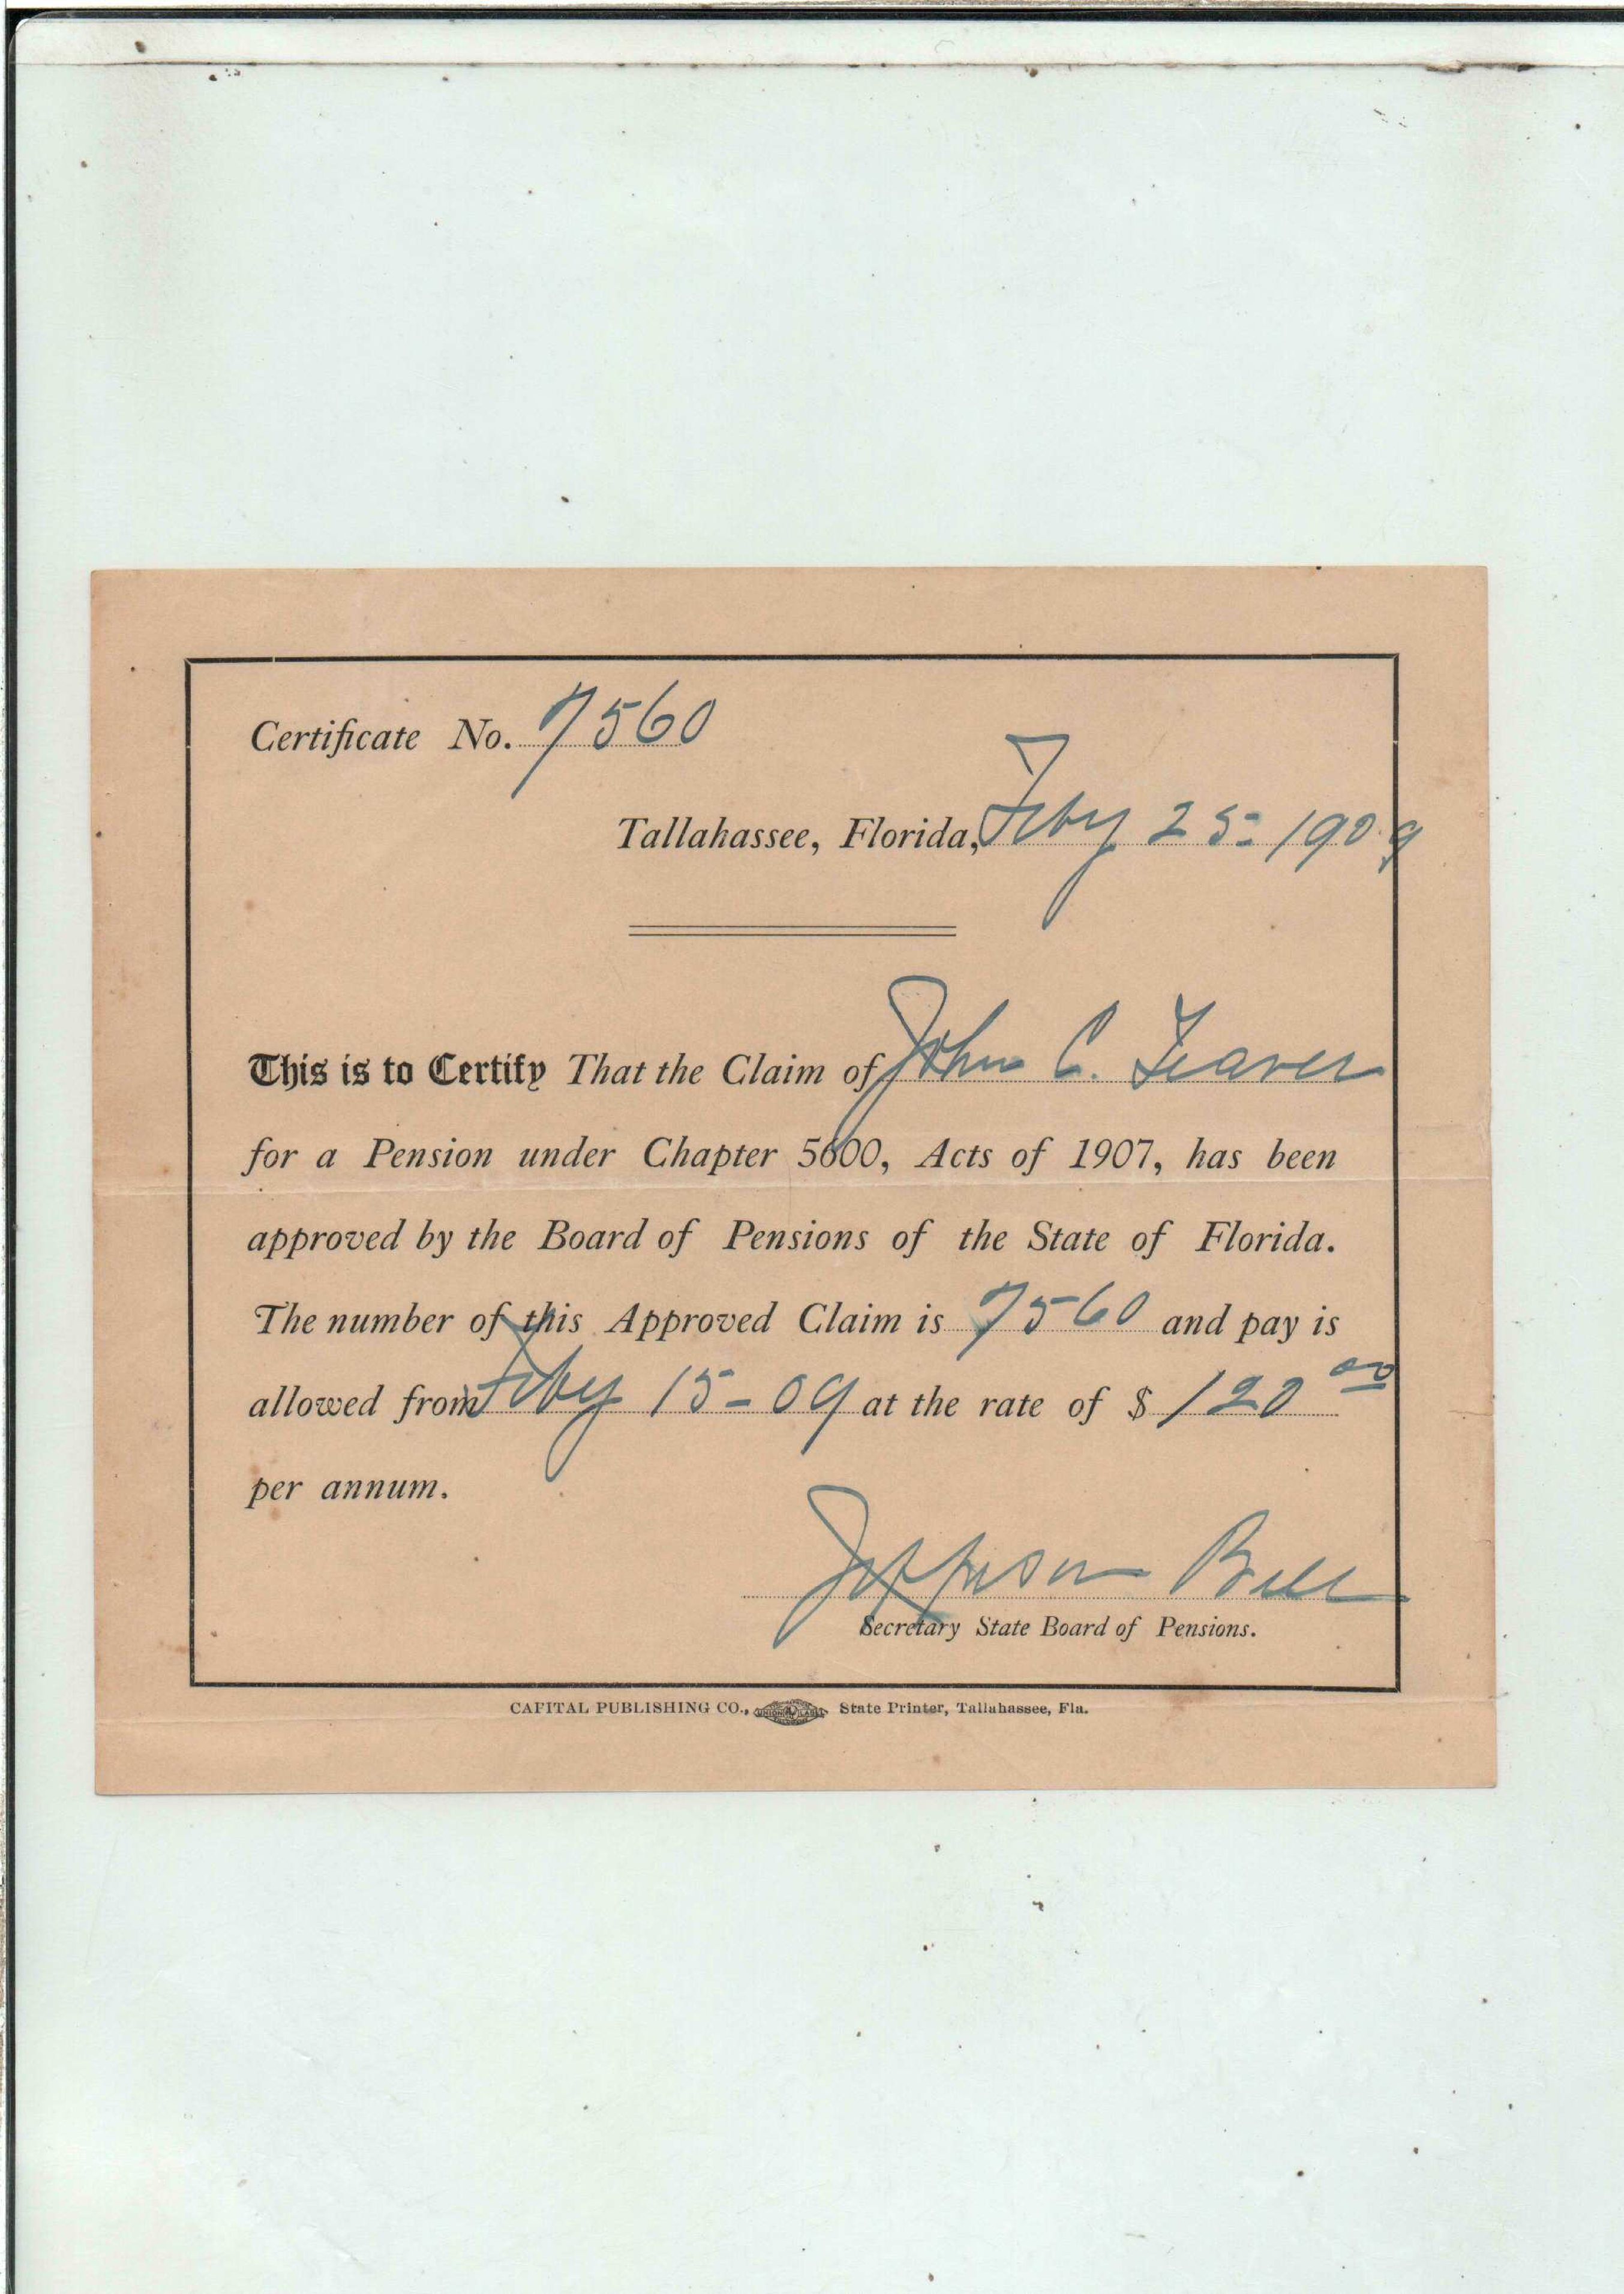 Certificate No. 7560
Tallahassee, Florida, Feby 25- 1909
This is to Certify That the Claim of John C.
for a Pension under Chapter 5600, Acts of 1907, has been
approved by the Board of Pensions of the State of Florida.
The number of this Approved Claim is 7560 and pay is
allowed from Feby 15-09 at the rate of $ 120 00
per annum.
Jefferson Bell
Secretary State Board of Pensions.
CAPITAL PUBLISHING CO., UNION LABEL State Printer, Tallahassee, Fla.